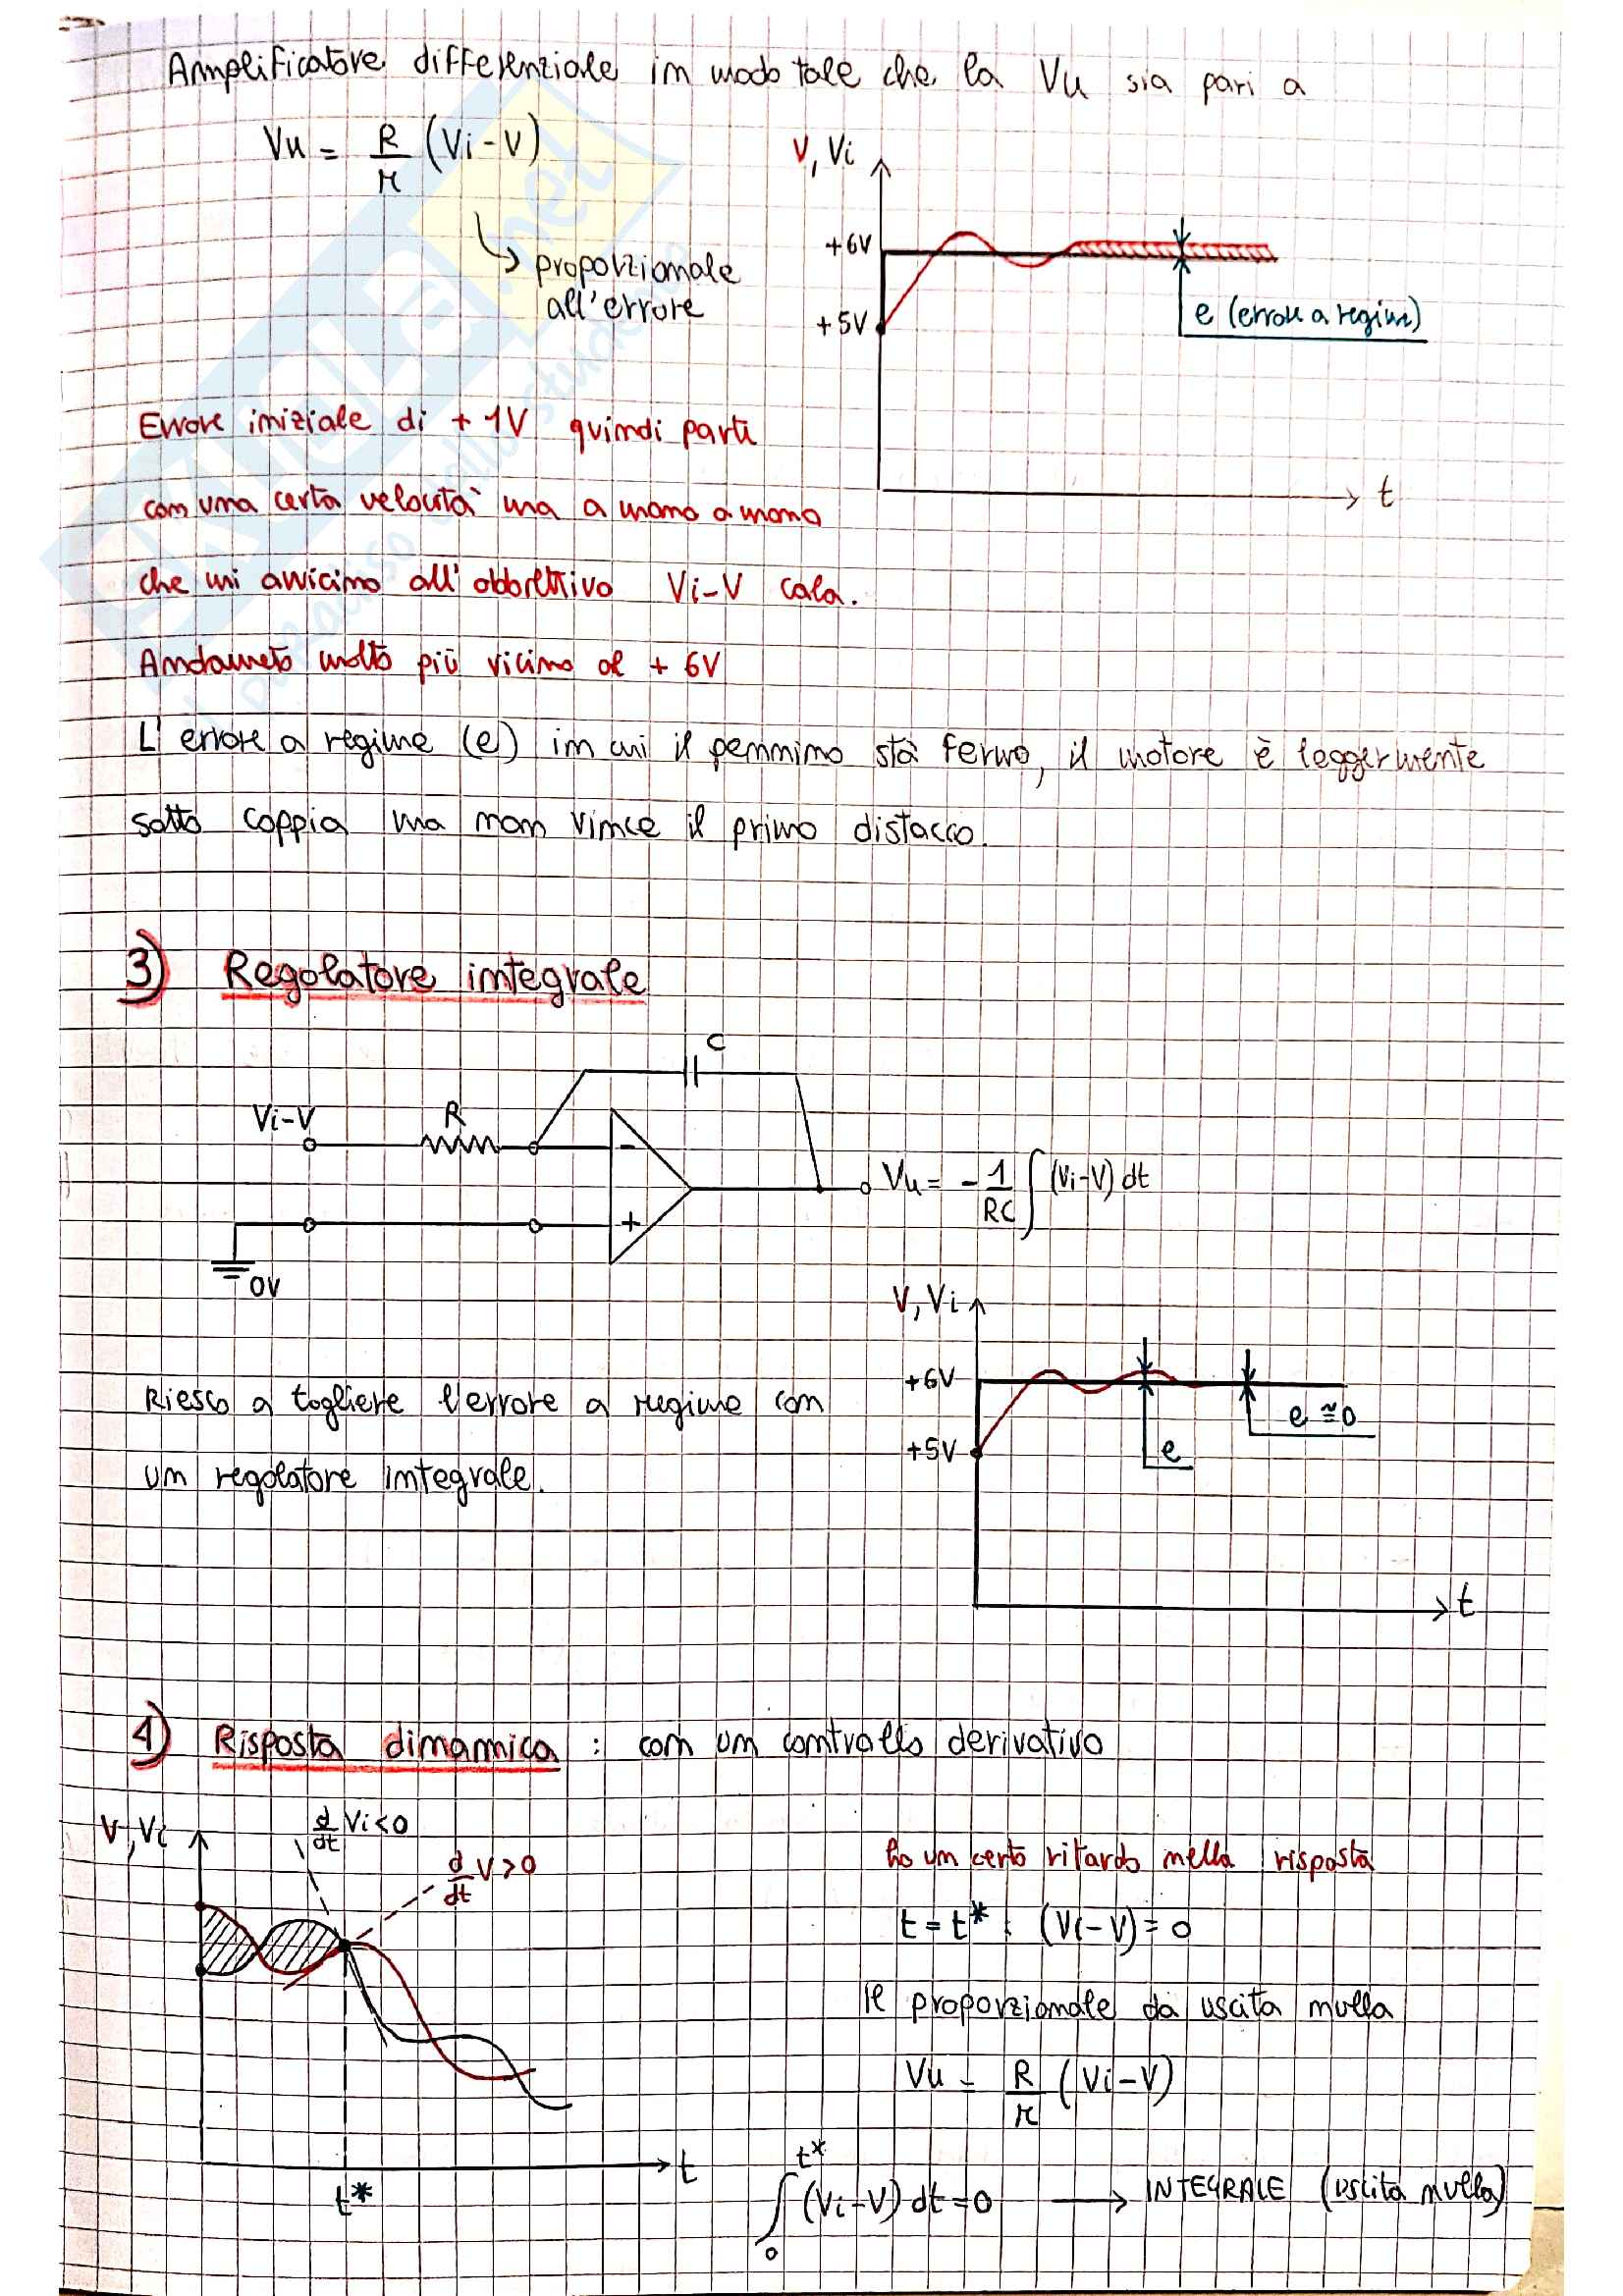 Amplificatore differenziale in modo tale che la Vu sia pari a
Vu = R/r (Vi-V)
proporzionale
all'errore
V, Vi
+6V
+5V
e (errore a regime)
t
Errore iniziale di +1V quindi parti
con una certa velocità ma a mano a mano
che mi avvicino all'obbiettivo Vi-V cala.
Andamento molto più vicino al +6V
L'errore a regime (e) in cui il pennino stà fermo, il motore è leggermente
sotto coppia ma non vince il primo distacco.
3) Regolatore integrale
C
Vi-V
R
-
+
0V
Vu = - 1/RC ∫(Vi-V) dt
V, Vi
+6V
+5V
e
e ≅ 0
t
Riesco a togliere l'errore a regime con
un regolatore integrale.
4) Risposta dinamica : con un controllo derivativo
V, Vi
d/dt Vi<0
d/dt V>0
t*
t
ho un certo ritardo nella risposta
t = t* : (Vi-V) = 0
Il proporzionale dà uscita nulla
Vu = R/r (Vi-V)
∫0t* (Vi-V) dt = 0 → INTEGRALE (uscita nulla)